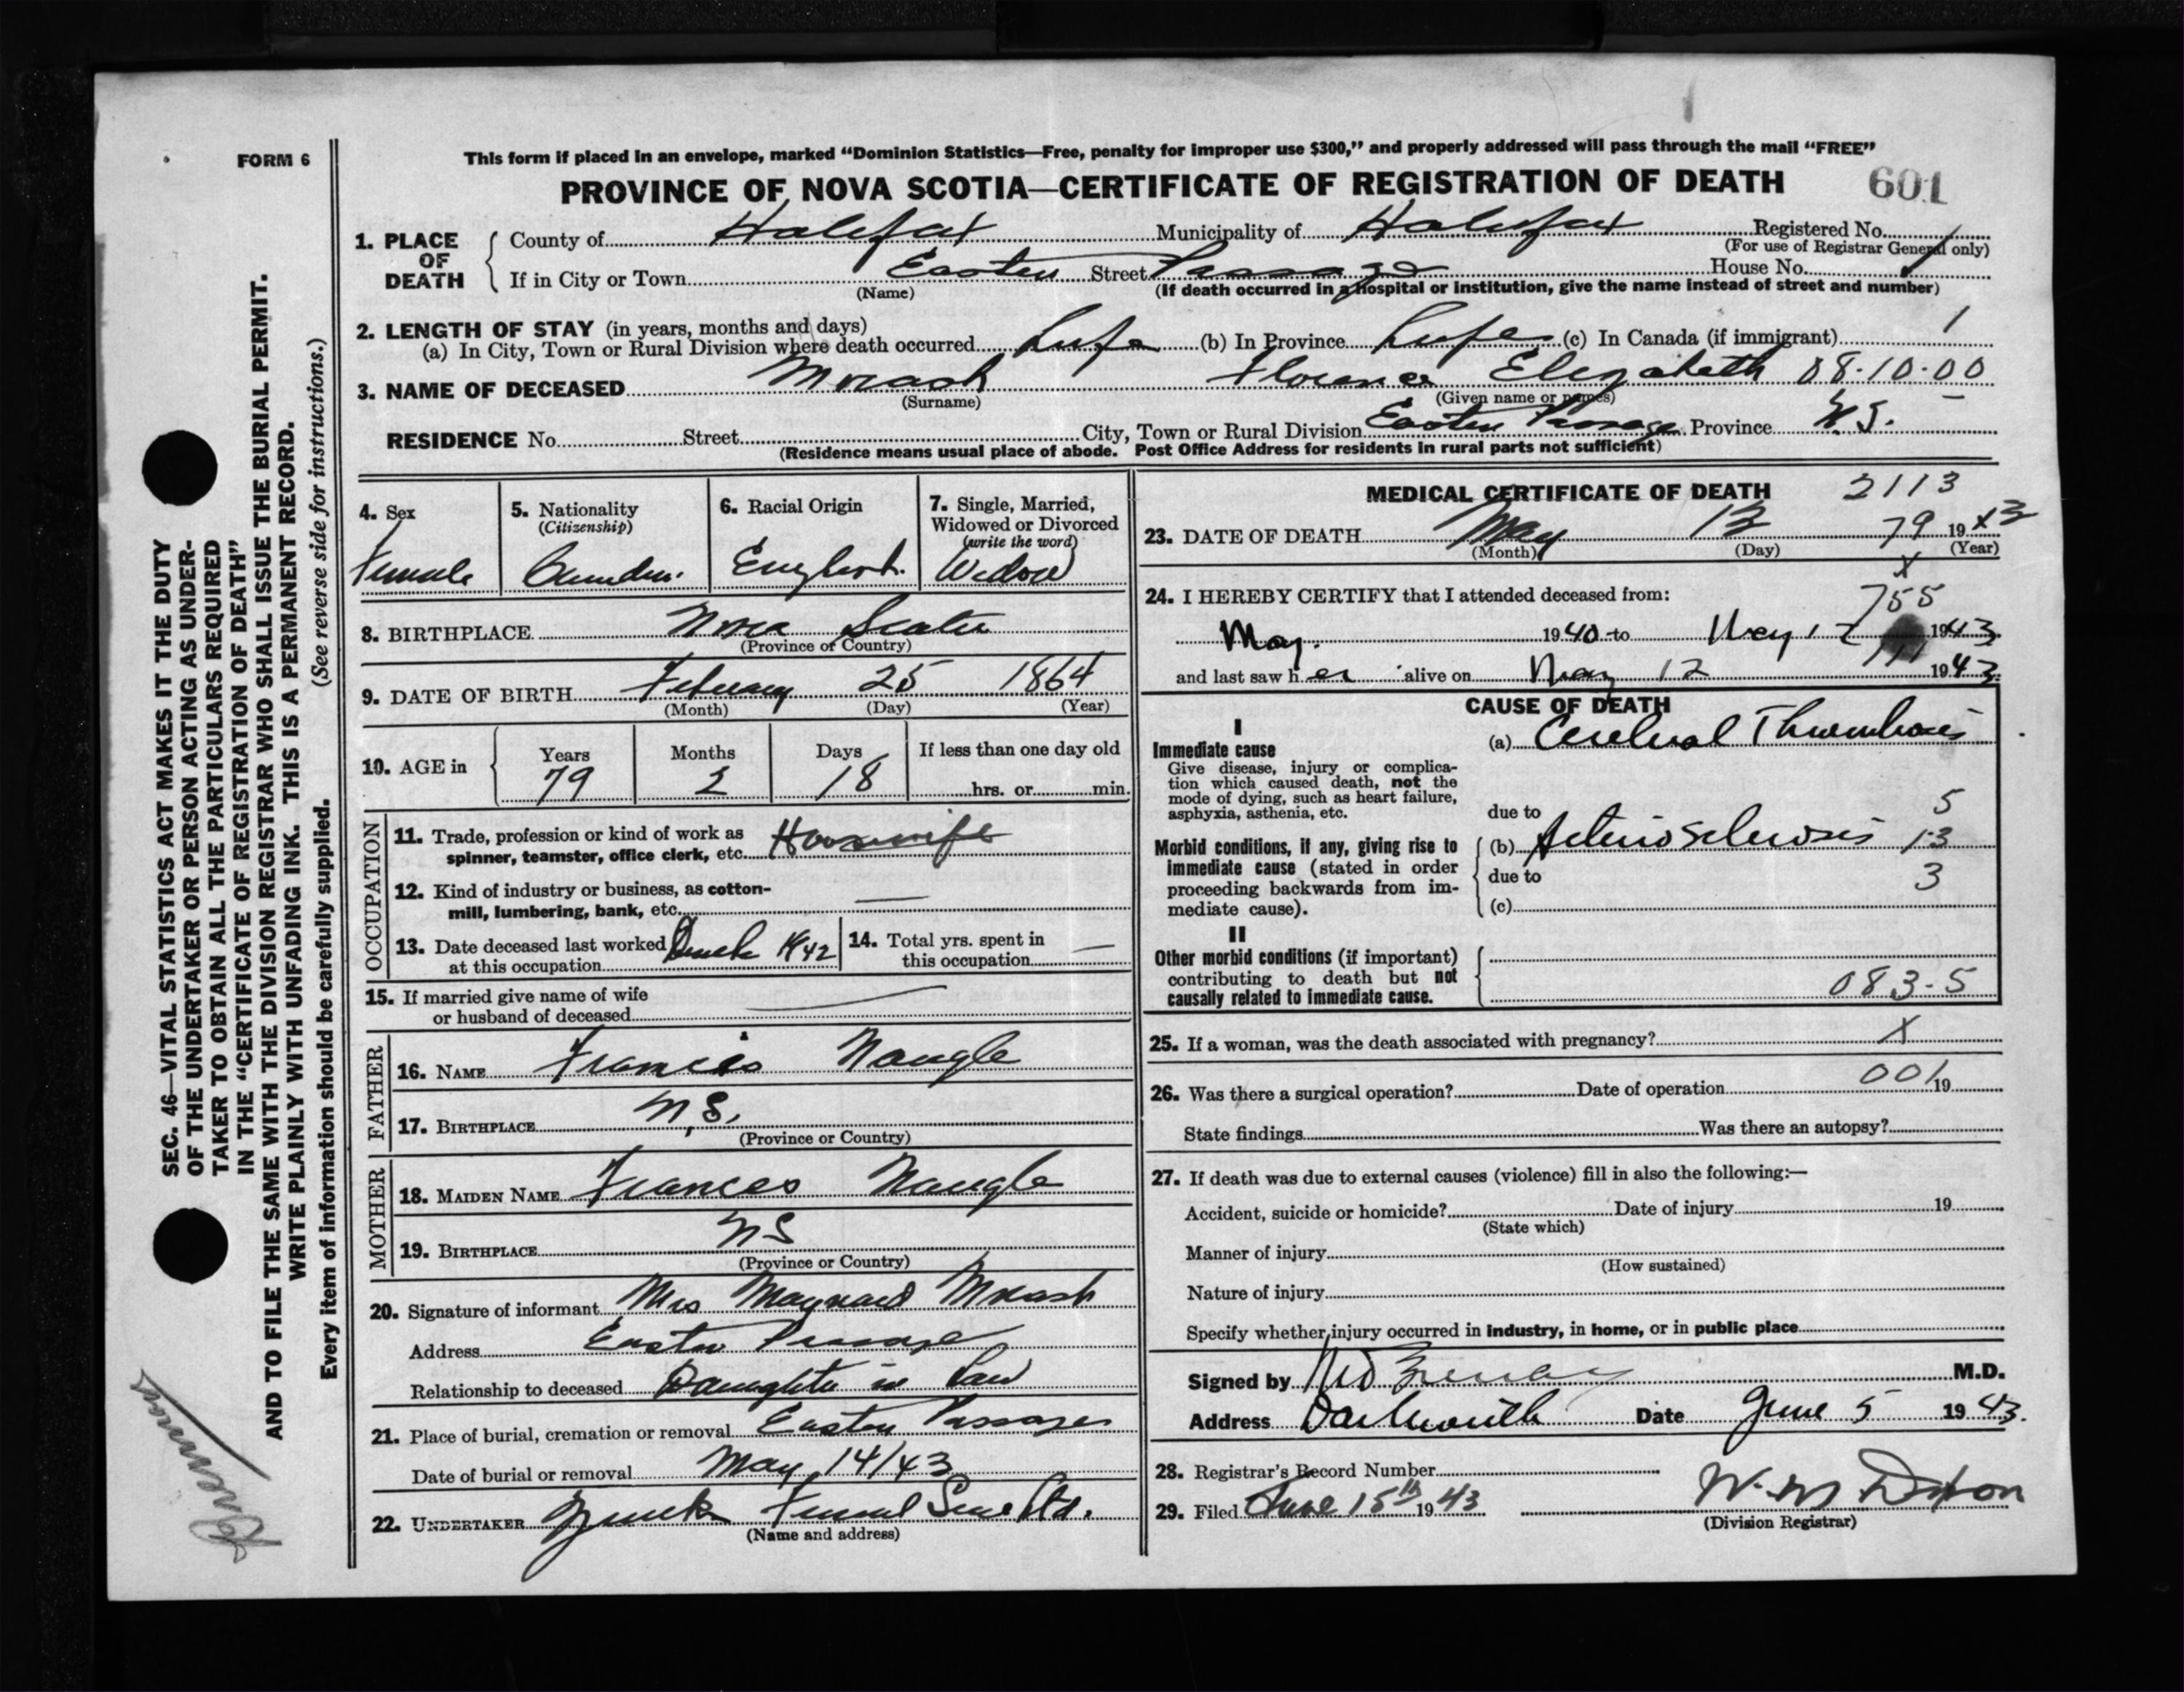 FORM 6
This form if placed in an envelope, marked “Dominion Statistics—Free, penalty for improper use $300,” and properly addressed will pass through the mail “FREE”
PROVINCE OF NOVA SCOTIA—CERTIFICATE OF REGISTRATION OF DEATH 601
1. PLACE OF DEATH
County of Halifax Municipality of Halifax Registered No.
(For use of Registrar General only)
If in City or Town Eastern Street Passage House No.
(Name) (If death occurred in a hospital or institution, give the name instead of street and number)
2. LENGTH OF STAY (in years, months and days)
(a) In City, Town or Rural Division where death occurred Life (b) In Province Life (c) In Canada (if immigrant)
3. NAME OF DECEASED Morash Florence Elizabeth 08·10·00
(Surname) (Given name or names)
RESIDENCE No. Street City, Town or Rural Division Eastern Passage Province N.S.
(Residence means usual place of abode. Post Office Address for residents in rural parts not sufficient)
4. Sex
Female
5. Nationality
(Citizenship)
6. Racial Origin
English
7. Single, Married,
Widowed or Divorced
(write the word)
Widow
8. BIRTHPLACE Nova Scotia
(Province or Country)
9. DATE OF BIRTH February 25 1864
(Month) (Day) (Year)
10. AGE in
Years Months Days If less than one day old
79 2 18 hrs. or min.
OCCUPATION
11. Trade, profession or kind of work as
spinner, teamster, office clerk, etc. Housewife
12. Kind of industry or business, as cotton-
mill, lumbering, bank, etc. —
13. Date deceased last worked
at this occupation 1942
14. Total yrs. spent in
this occupation —
15. If married give name of wife
or husband of deceased
FATHER
16. NAME Francis Naugle
17. BIRTHPLACE N.S.
(Province or Country)
MOTHER
18. MAIDEN NAME Frances Naugle
19. BIRTHPLACE NS
(Province or Country)
20. Signature of informant Mrs Maynard Morash
Address Eastern Passage
Relationship to deceased Daughter in Law
21. Place of burial, cremation or removal Eastern Passage
Date of burial or removal May 14/43
22. UNDERTAKER Funeral Ltd.
(Name and address)
MEDICAL CERTIFICATE OF DEATH 2113
23. DATE OF DEATH May 79 19 43
(Month) (Day) (Year)
24. I HEREBY CERTIFY that I attended deceased from:
755
May. 1940 to May 1943
and last saw her alive on May 12 1943
CAUSE OF DEATH
I
Immediate cause
Give disease, injury or complica-
tion which caused death, not the
mode of dying, such as heart failure,
asphyxia, asthenia, etc.
(a) Cerebral Thrombosis
due to 5
Morbid conditions, if any, giving rise to
immediate cause (stated in order
proceeding backwards from im-
mediate cause).
(b) Arteriosclerosis 13
due to 3
(c)
II
Other morbid conditions (if important)
contributing to death but not
causally related to immediate cause.
083-5
25. If a woman, was the death associated with pregnancy? X
26. Was there a surgical operation? Date of operation 001 19
State findings Was there an autopsy?
27. If death was due to external causes (violence) fill in also the following:—
Accident, suicide or homicide? Date of injury 19
(State which)
Manner of injury
(How sustained)
Nature of injury
Specify whether injury occurred in industry, in home, or in public place
Signed by M.D.
Address Dartmouth Date June 5 1943.
28. Registrar's Record Number
29. Filed June 15th 1943 W. M Dixon
(Division Registrar)
SEC. 46—VITAL STATISTICS ACT MAKES IT THE DUTY
OF THE UNDERTAKER OR PERSON ACTING AS UNDER-
TAKER TO OBTAIN ALL THE PARTICULARS REQUIRED
IN THE “CERTIFICATE OF REGISTRATION OF DEATH”
AND TO FILE THE SAME WITH THE DIVISION REGISTRAR WHO SHALL ISSUE THE BURIAL PERMIT.
WRITE PLAINLY WITH UNFADING INK. THIS IS A PERMANENT RECORD.
Every item of information should be carefully supplied. (See reverse side for instructions.)